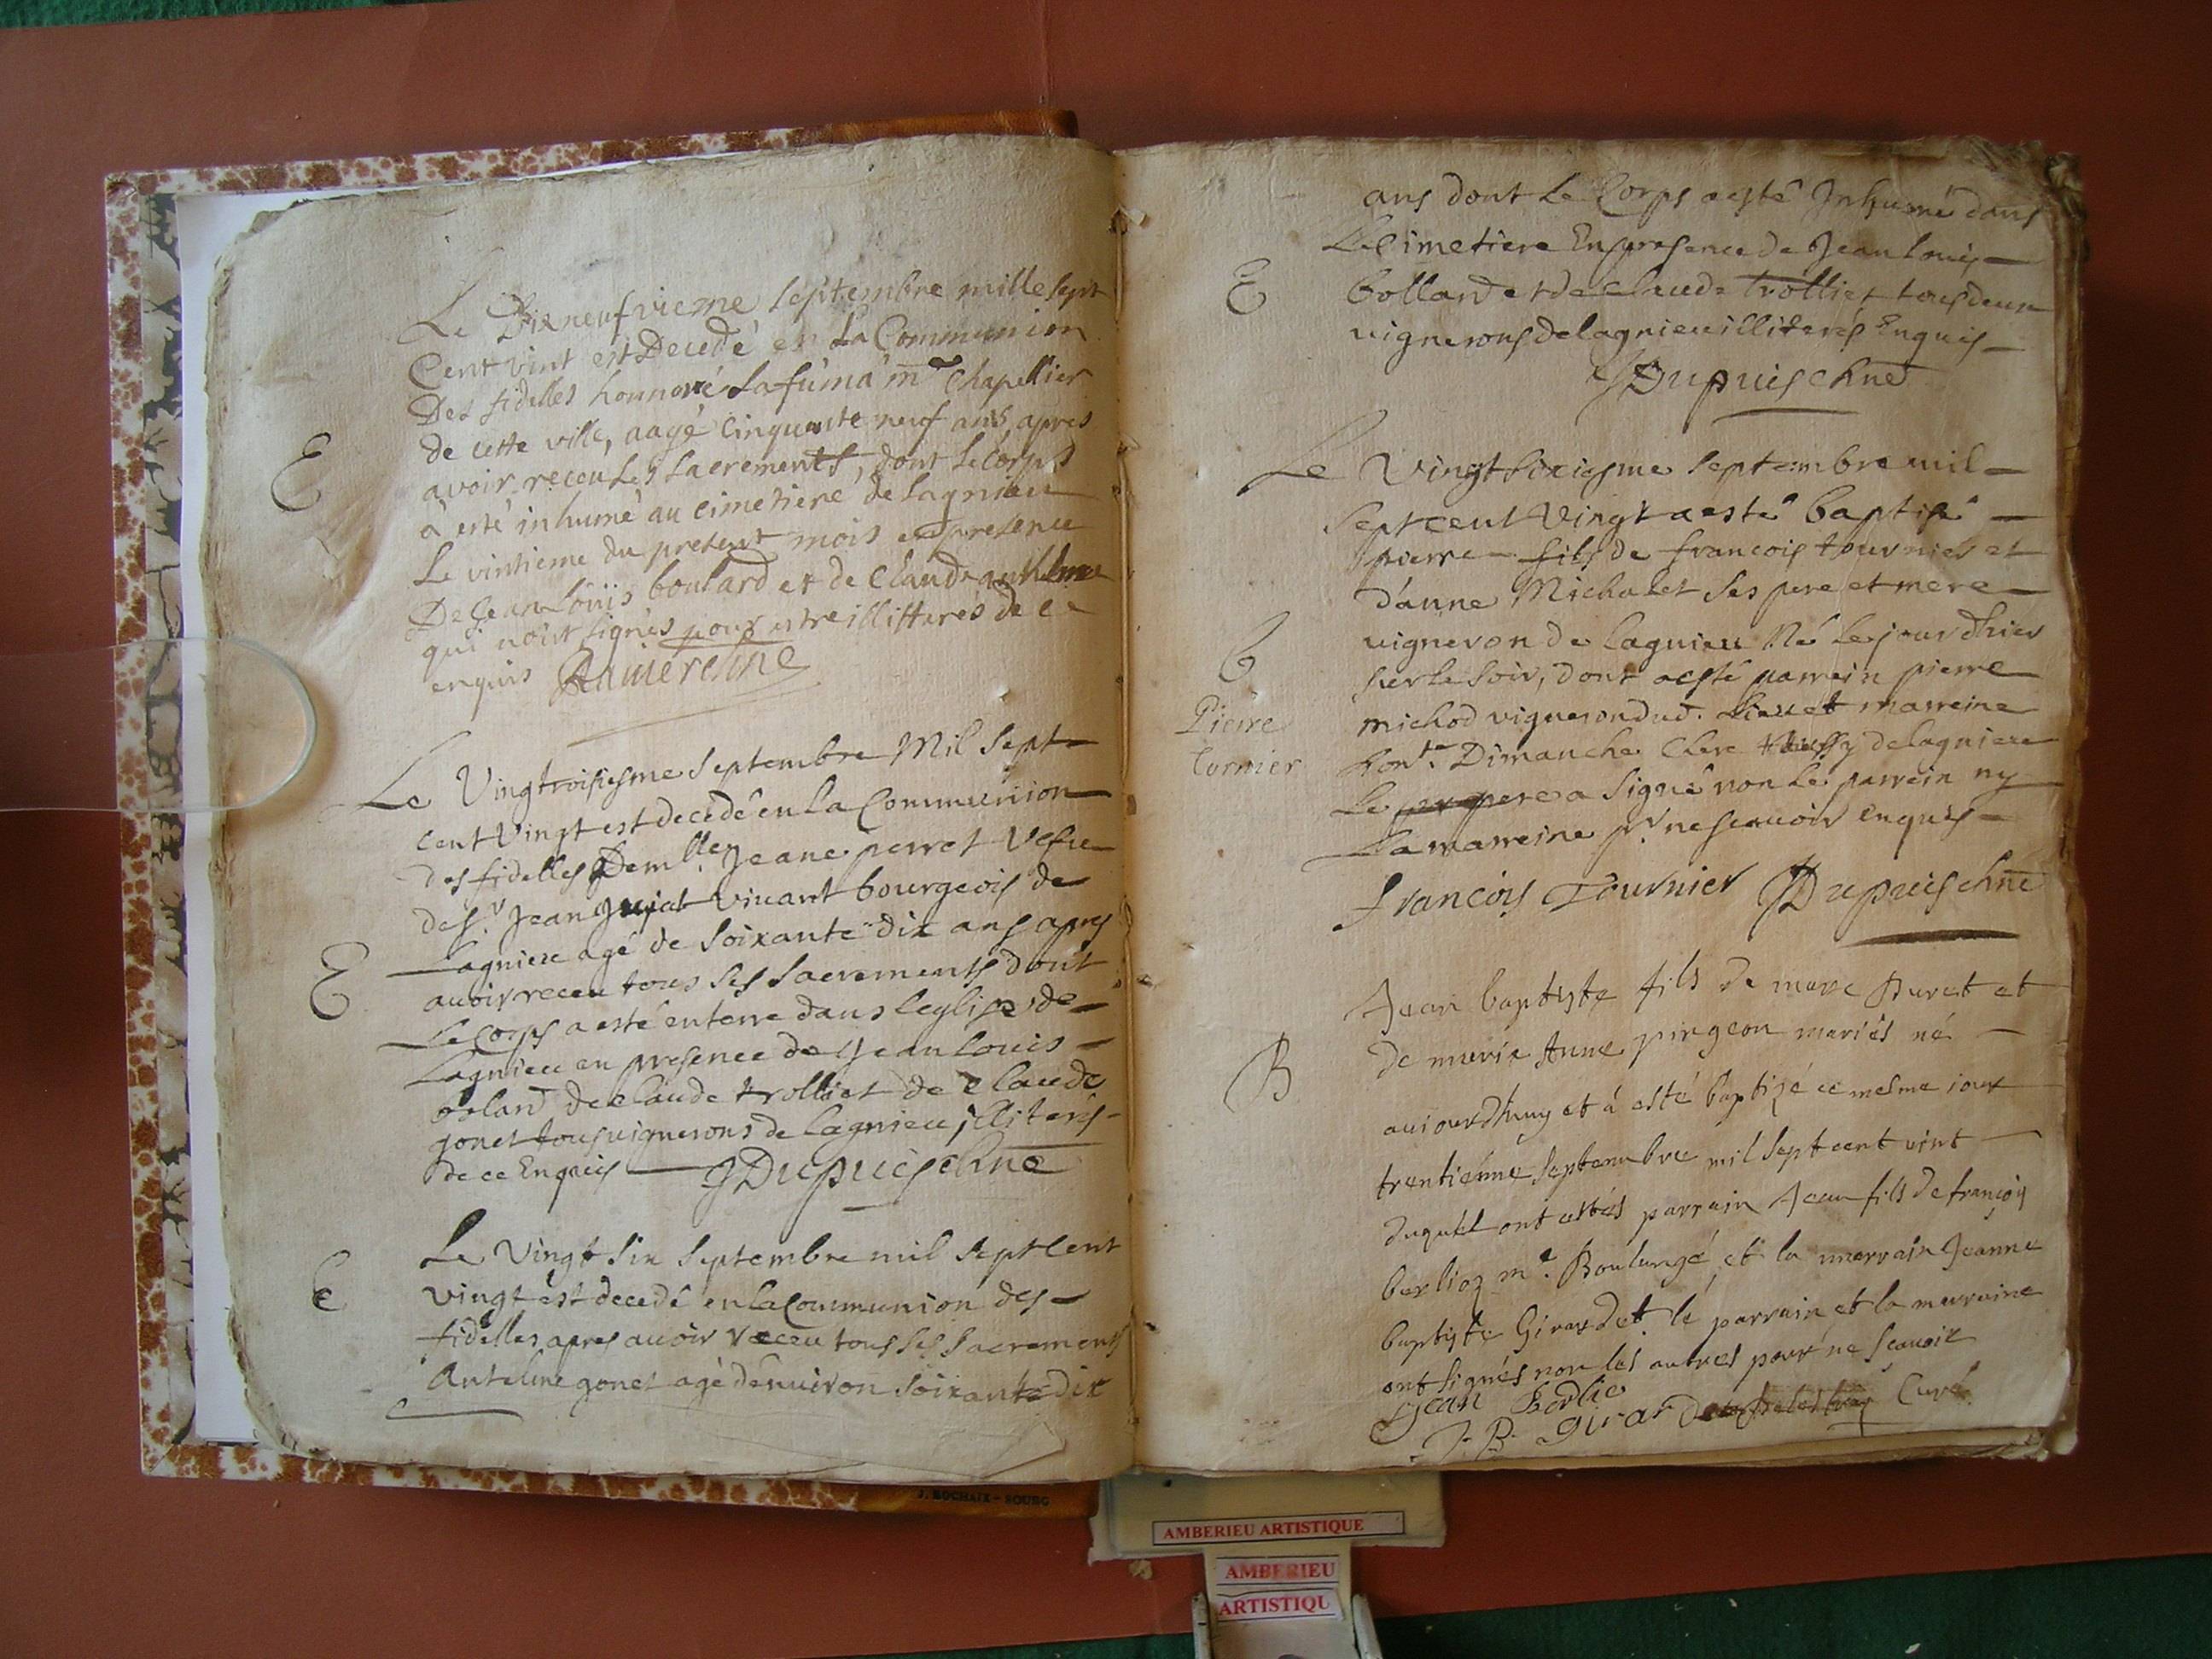 Le Dixneufvieme septembre mille sept
Cent vint est Decedé en La Communion
Des fidelles honnoré Lafuma mre Chapellier
de cette ville, aagé Cinquante neuf ans, apres
E
avoir receu Les sacrements, dont Le corps
à esté inhumé au cimetiere de Lagnieu
Le vintieme du present mois en presence
De Jean Loüis boulard et de Claude anthelme
qui n'ont signés pour estre illitterés de ce
enquis
Le Vingtroisiesme Septembre Mil Sept
cent Vingt est decedé en la Communion
des fidelles Demlle. Jeane perret Vefve
de sr. Jean Vivant bourgeois de
Lagnieu agé de Soixante dix ans apres
E
avoir receu tous ses Sacrements dont
Le Corps a esté enterré dans leglise de
Lagnieu en presence de Jean Louis
bolard de Claude trolliet de Claude
gonet tous vignerons de Lagnieu illiterés
de ce Enquis JDupuis chne
Le Vingt Six Septembre mil Sept Cent
E
vingt est decedé en la Communion des
fidelles apres avoir receu tous ses Sacrements
Antelme gonet agé denuiron soixante dix
ans dont Le Corps a esté Inhumé dans
Le Cimetiere En presence de Jean Louis
E
bollard et de Claude trolliet tous deux
vignerons de lagnieu illiterés Enquis
JDupuis chne
Le Vingt Sixiesme Septembre mil
Sept cent Vingt a esté baptisé
pierre fils de francois tournier et
d'anne Michalet Ses pere et mere
vigneron de lagnieu Né le jour d'hier
b
sur le soir, dont a esté parrein pierre
Pierre
michod vigneron dud. Lieu et marreine
Turnier
honte. Dimanche Clere de lagnieu
Le pere a Signé non Le parrein ny
La marreine pr. ne scauoir enquis
francois Tournier JDupuis chne
Jean baptiste fils de marc Buret et
de marie Anne pingeon mariés né
B
auiourdhuy et à esté baptizé ce mesme iour
trentiéme Septembre mil Sept cent vint
duquel ont estés parrain Jean fils de françois
berlioz me. Boulangé et la marrain Jeanne
baptiste Girardet le parrain et la marraine
ont signés non les autres pour ne scauoir
Jean Berlio
J. B. girardet Curé
J. ROCHAIX - BOURG
AMBERIEU ARTISTIQUE
AMBERIEU
ARTISTIQU